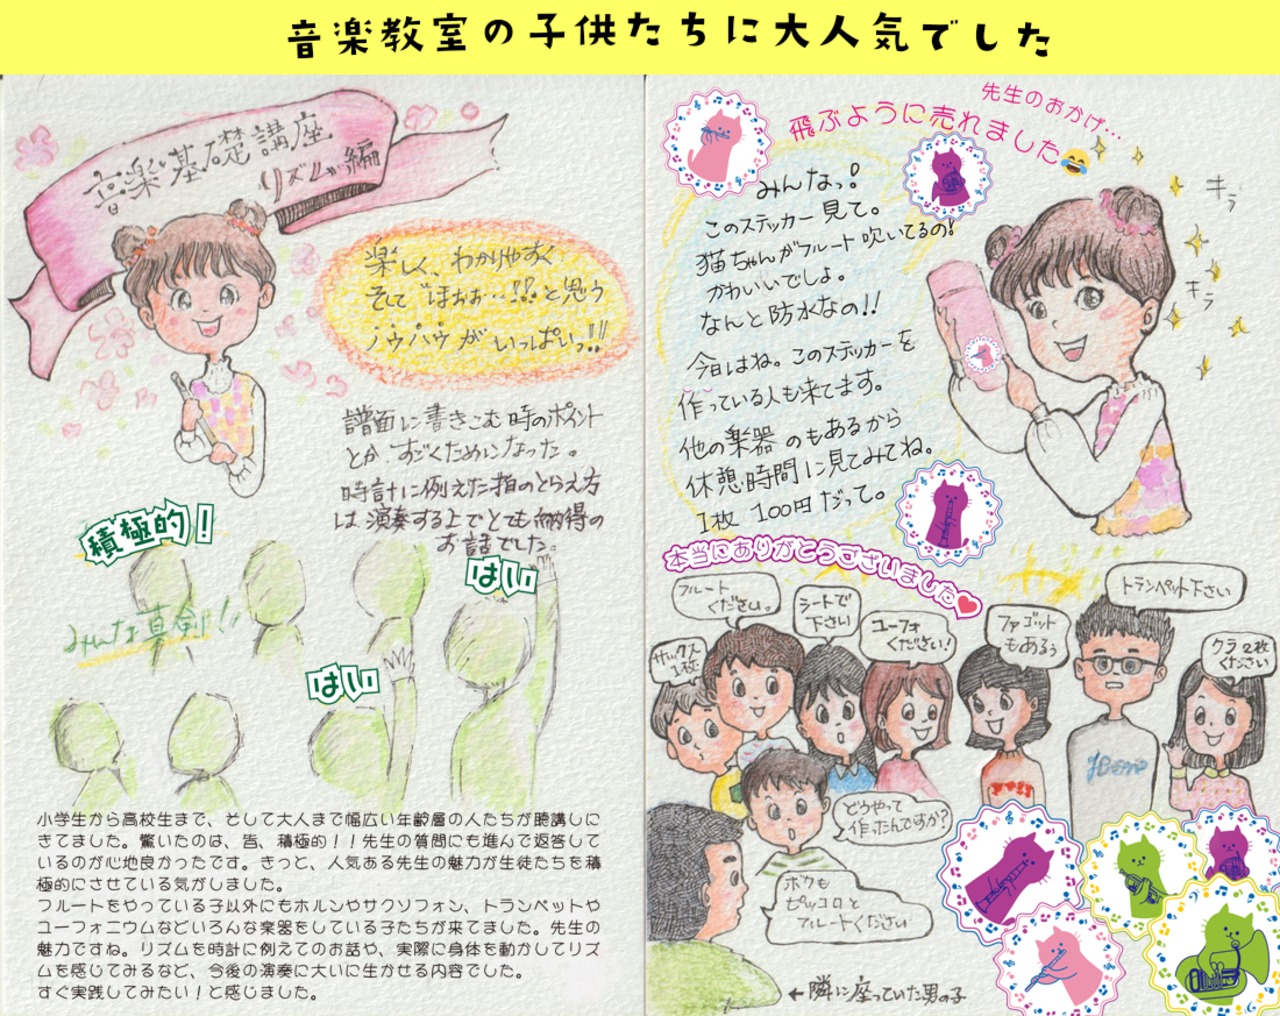 音楽教室の子供たちに大人気でした
音楽基礎講座
リズム編
楽しく、わかりやすく
そして“ほぉぉ…!!”と思う
ノウハウがいっぱいっ!!
譜面に書きこむ時のポイント
とか、すごくためになった。
時計に例えた拍のとらえ方
は演奏する上でとても納得の
お話でした。
積極的！
みんな真剣!!
はい
はい
小学生から高校生まで、そして大人まで幅広い年齢層の人たちが聴講しに
きてました。驚いたのは、皆、積極的！！先生の質問にも進んで返答して
いるのが心地良かったです。きっと、人気ある先生の魅力が生徒たちを積
極的にさせている気がしました。
フルートをやっている子以外にもホルンやサクソフォン、トランペットや
ユーフォニウムなどいろんな楽器をしている子たちが来てました。先生の
魅力ですね。リズムを時計に例えてのお話や、実際に身体を動かしてリズ
ムを感じてみるなど、今後の演奏に大いに生かせる内容でした。
すぐ実践してみたい！と感じました。
先生のおかげ…
飛ぶように売れました😂
みんなっ!
このステッカー見て。
猫ちゃんがフルート吹いてるの!
かわいいでしょ。
なんと防水なの!!
今日はね。このステッカーを
作っている人も来てます。
他の楽器のもあるから
休憩時間に見てみてね。
1枚 100円だって。
キラ
キラ
本当にありがとうございました❤
サックス
1枚
フルート
ください。
シートで
下さい
ユーフォ
ください!
ファゴット
もあるぅ
トランペット下さい
クラ2枚
ください
どうやって
作ったんですか?
ボクも
ピッコロと
フルートください
←隣に座っていた男の子